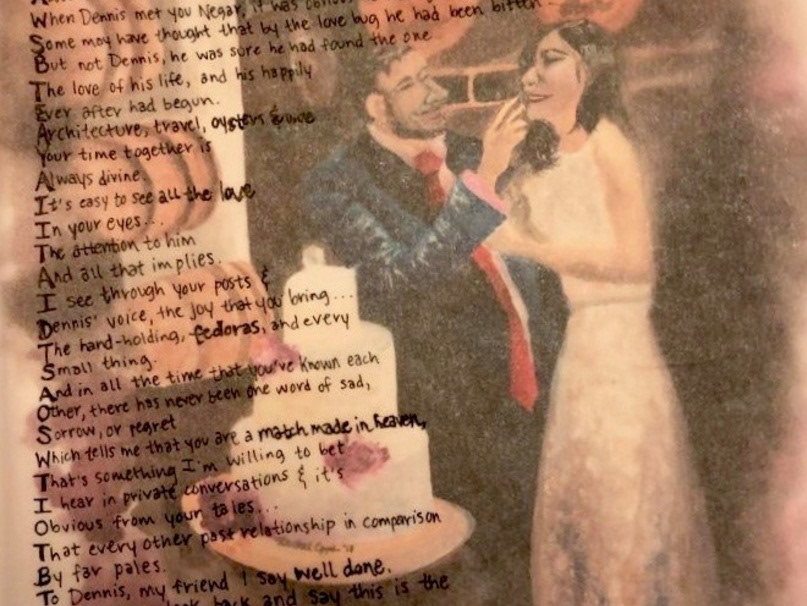 When Dennis met you Negar, it was
Some may have thought that by the love bug he had been bitten
But not Dennis, he was sure he had found the one
The love of his life, and his happily
Ever after had begun.
Architecture, travel, oysters & wine
Your time together is
Always divine.
It's easy to see all the love
In your eyes...
The attention to him
And all that implies.
I see through your posts &
Dennis' voice, the joy that you bring...
The hand-holding, fedoras, and every
Small thing.
And in all the time that you've known each
Other, there has never been one word of sad,
Sorrow, or regret
Which tells me that you are a match made in heaven,
That's something I'm willing to bet
I hear in private conversations & it's
Obvious from your tales...
That every other past relationship in comparison
By far pales.
To Dennis, my friend I say well done.
back and say this is the